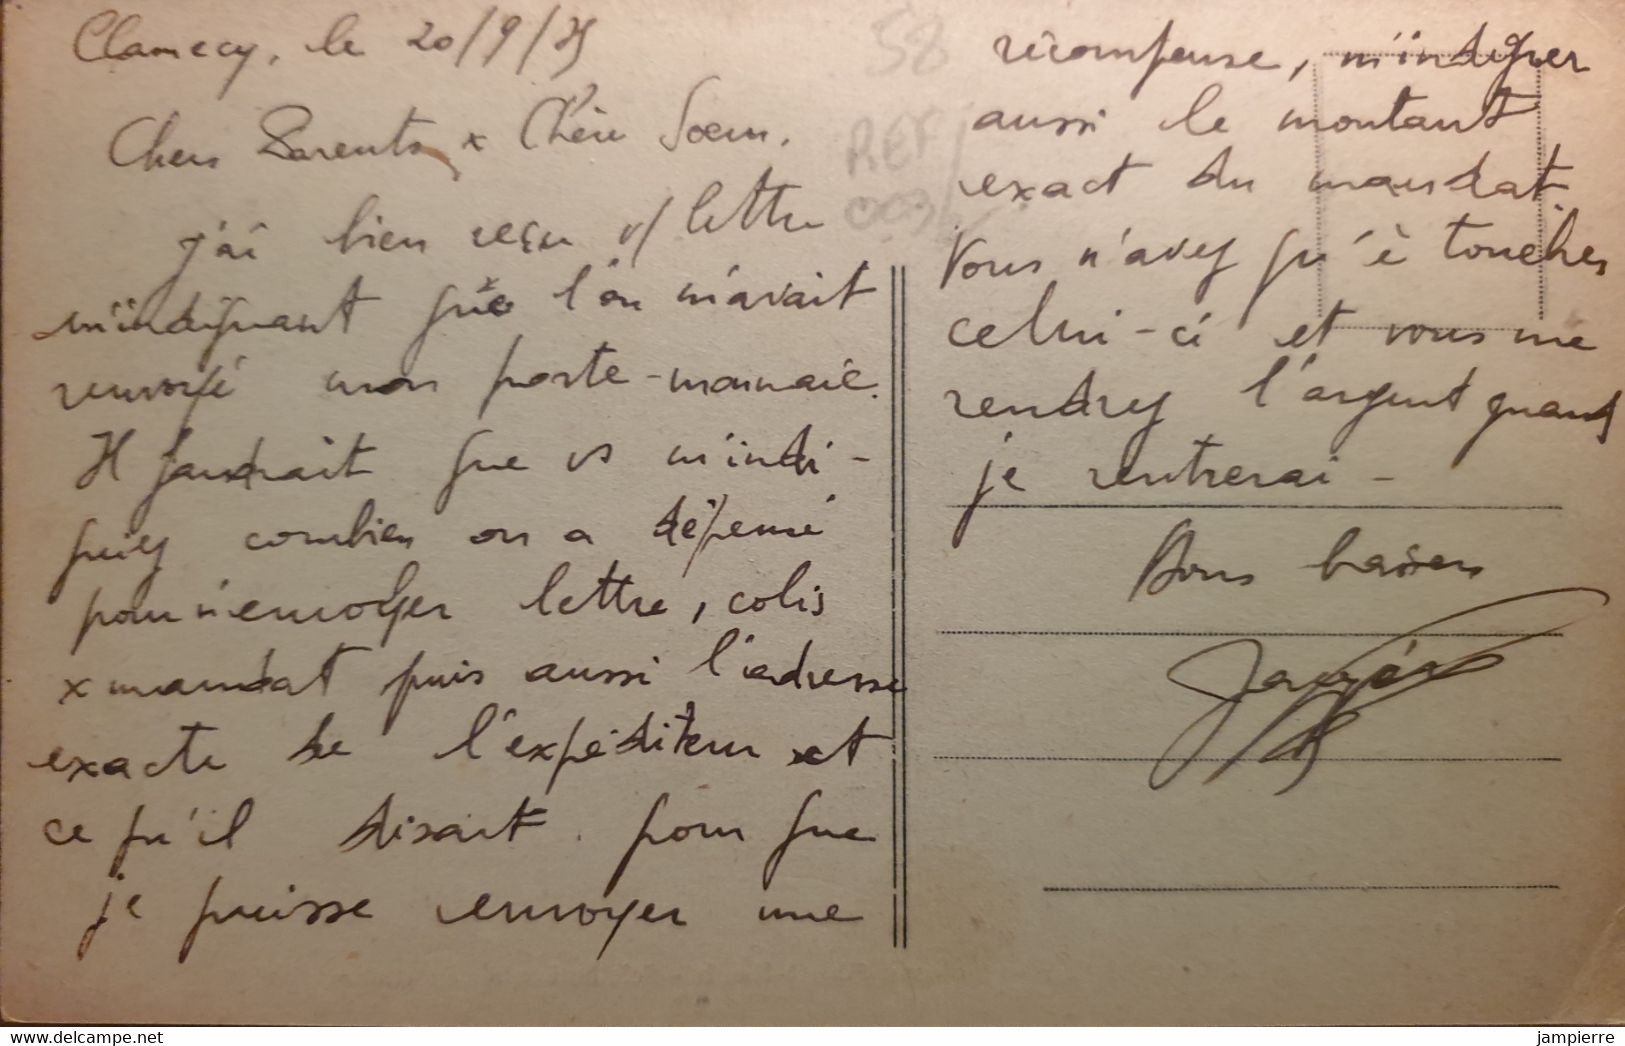 Clamecy, le 20/9/
58
REF
003
Chers Parents x Chère Soeur.
j'ai bien reçu v/ lettre
m'indiquant que l'on m'avait
renvoyé mon porte-monnaie.
Il faudrait que vs m'indi-
quiez combien on a dépensé
pour m'envoyer lettre, colis
x mandat puis aussi l'adresse
exacte de l'expéditeur et
ce qu'il disait pour que
je puisse envoyer une
récompense, m'indiquer
aussi le montant
exact du mandat.
Vous n'avez qu'à toucher
celui-ci et vous me
rendrez l'argent quand
je rentrerai -
Bons baisers
jampierre